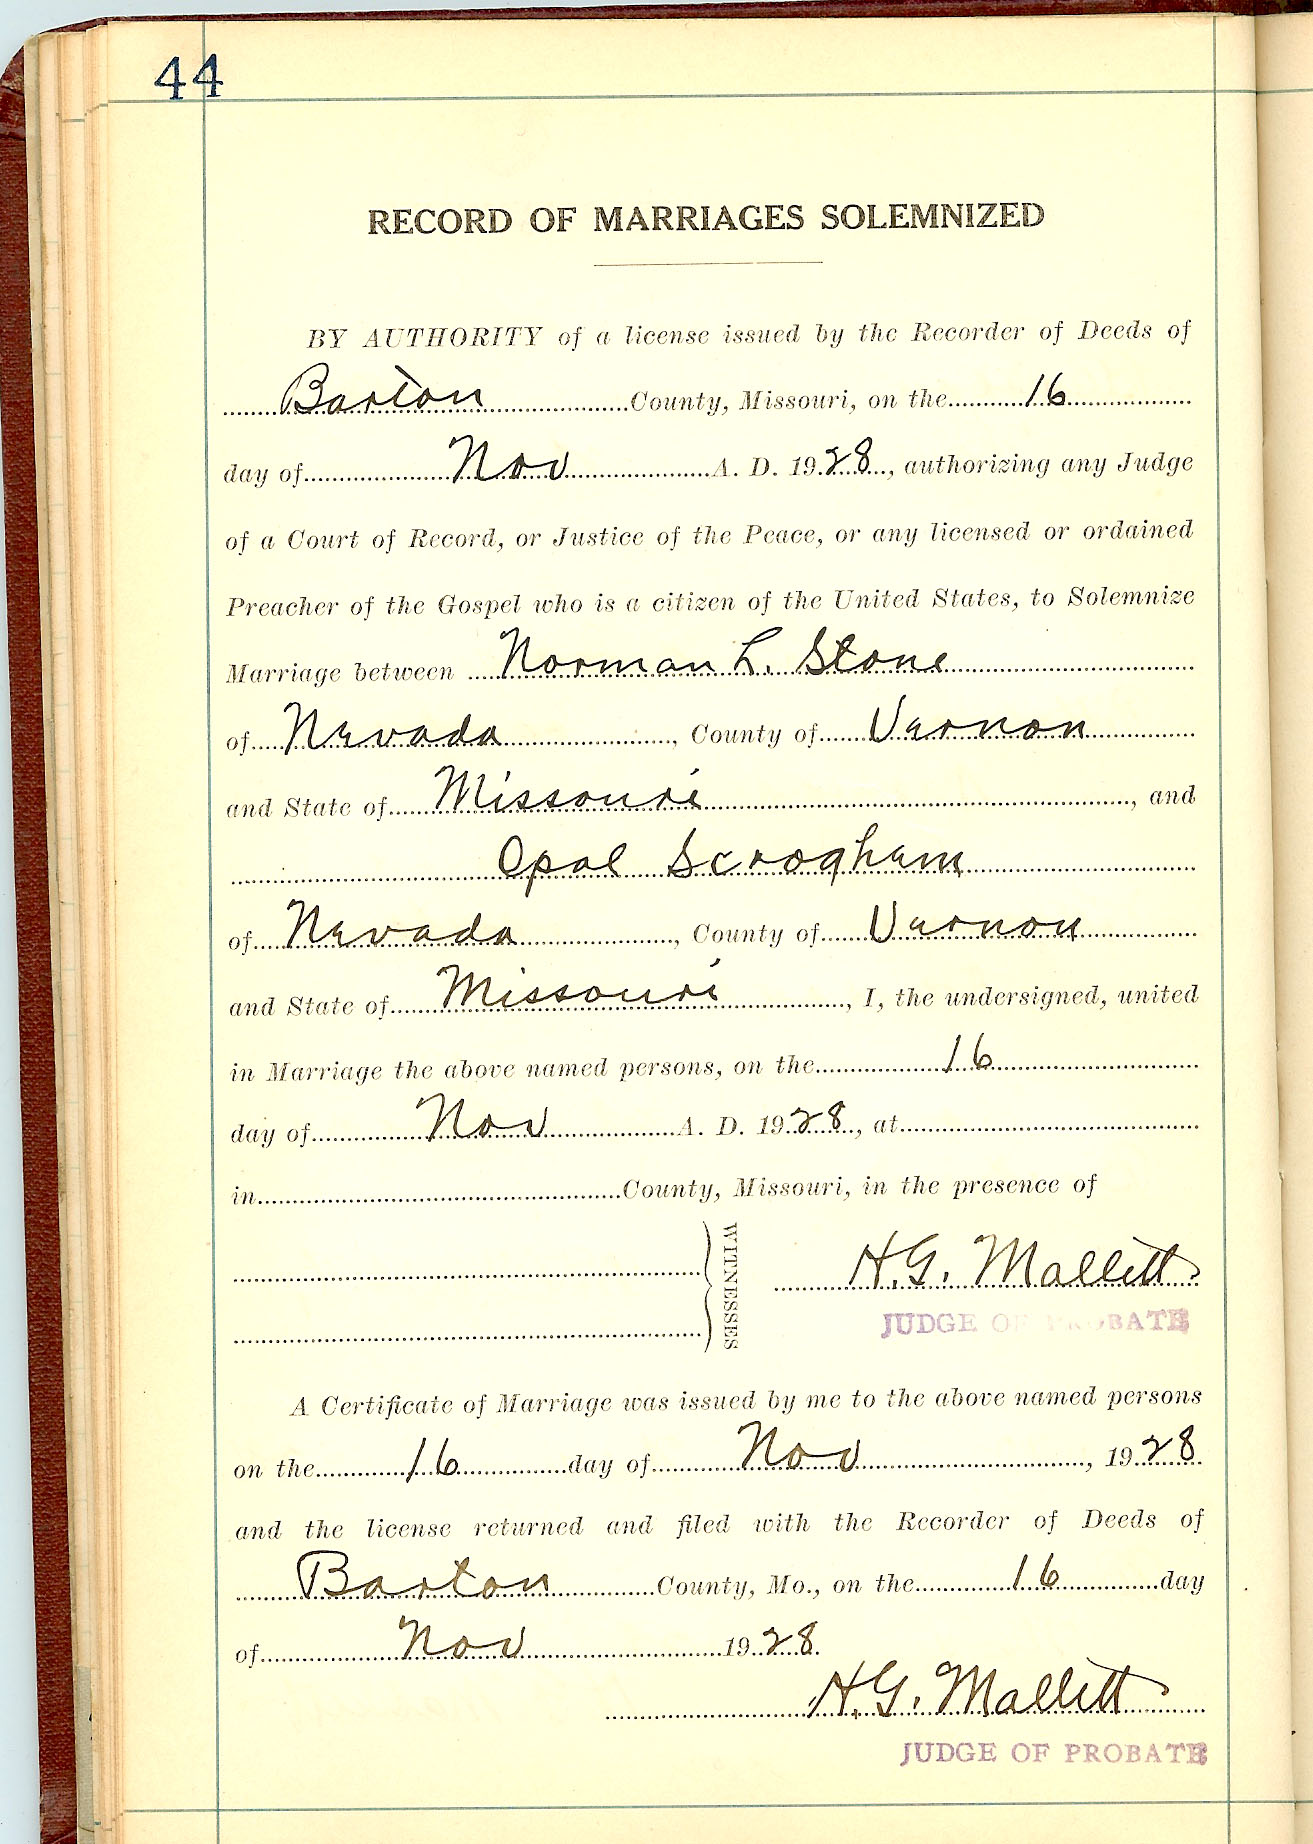 44
RECORD OF MARRIAGES SOLEMNIZED
BY AUTHORITY of a license issued by the Recorder of Deeds of
Barton County, Missouri, on the 16
day of Nov A. D. 1928, authorizing any Judge
of a Court of Record, or Justice of the Peace, or any licensed or ordained
Preacher of the Gospel who is a citizen of the United States, to Solemnize
Marriage between Norman L. Stone
of Nevada, County of Vernon
and State of Missouri, and
Opal Scrogham
of Nevada, County of Vernon
and State of Missouri, I, the undersigned, united
in Marriage the above named persons, on the 16
day of Nov A. D. 1928, at
in County, Missouri, in the presence of
WITNESSES
H.G. Mallett
JUDGE OF PROBATE
A Certificate of Marriage was issued by me to the above named persons
on the 16 day of Nov, 1928
and the license returned and filed with the Recorder of Deeds of
Barton County, Mo., on the 16 day
of Nov 1928.
H.G. Mallett
JUDGE OF PROBATE